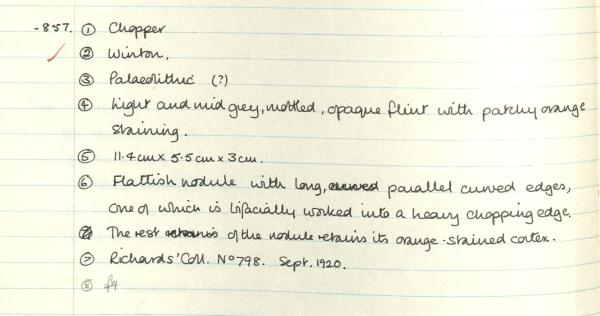 -857. ① Chopper
② Winton.
③ Palaeolithic (?)
④ Light and mid grey, mottled, opaque flint with patchy orange
staining.
⑤ 11.4cm x 5.5cm x 3cm.
⑥ Flattish nodule with long, curved parallel curved edges,
one of which is bifacially worked into a heavy chopping edge.
The rest retains of the nodule retains its orange-stained cortex.
⑦ Richards' Coll. No 798. Sept. 1920.
⑧ f9